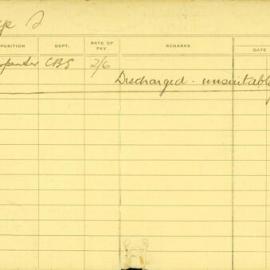 OSITION DEPT. RATE OF PAY. REMARKS. DATE
penter CBS 2/6
Discharged - unsuitable